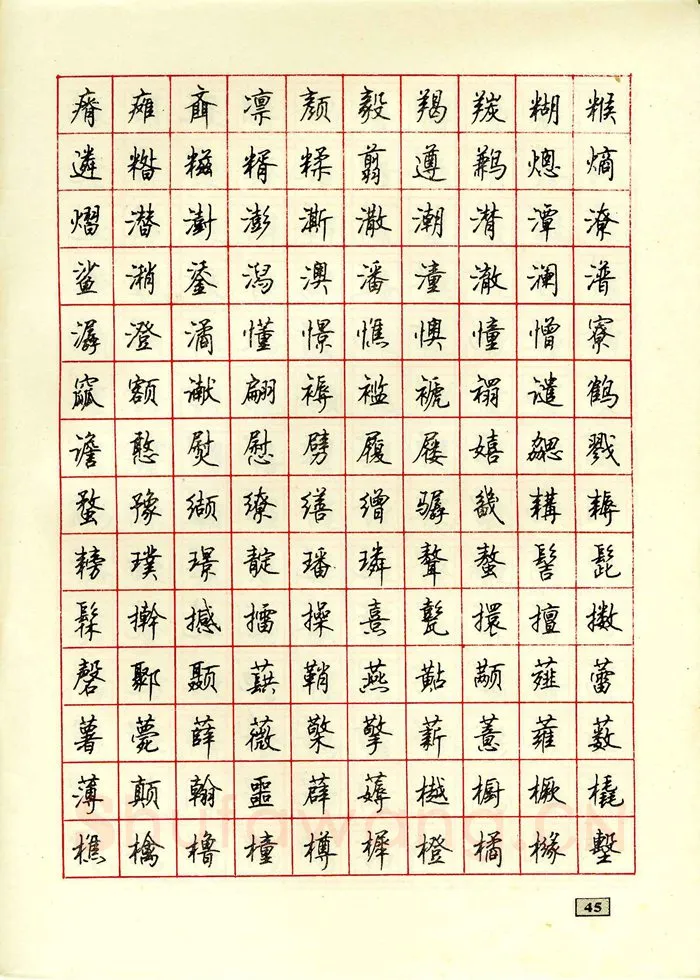 瘠 瘫 齑 凛 颜 毅 羯 羰 糊 糇
遴 糌 糍 糈 糅 翦 遵 鹣 熜 熵
熠 潜 澍 澎 澌 潵 潮 潸 潭 潦
鲨 潲 鋈 潟 澳 潘 潼 澈 澜 潽
潺 澄 潏 懂 憬 憔 懊 憧 憎 寮
窳 额 谳 翩 褥 褴 褫 禤 谴 鹤
谵 憨 熨 慰 劈 履 屦 嬉 勰 戮
蝥 豫 缬 缭 缮 缯 骣 畿 耩 耨
耪 璞 璟 靛 璠 璘 聱 螯 髻 髭
髹 擀 撼 擂 操 熹 甏 擐 擅 擞
磬 鄹 颞 蕻 鞘 燕 黇 颟 薤 蕾
薯 薨 薛 薇 檠 擎 薪 薏 蕹 薮
薄 颠 翰 噩 薜 薅 樾 橱 橛 橇
樵 檎 橹 橦 樽 樨 橙 橘 橼 墼
45